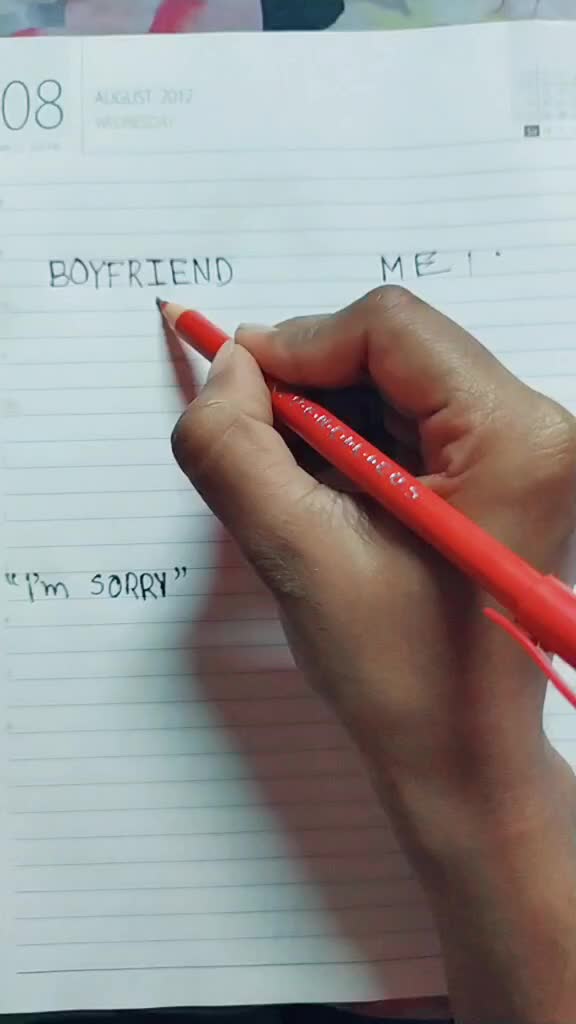 08
AUGUST 2012
WEDNESDAY
BOYFRIEND ME
"I'm SORRY"